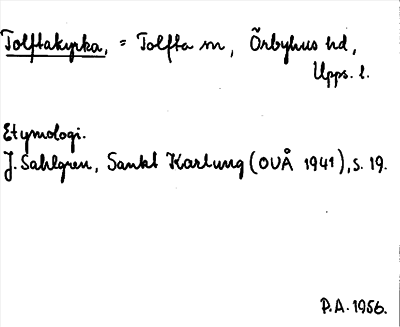 Tolftakyrka, = Tolfta sn, Örbyhus hd,
Upps. l.
Etymologi.
J. Sahlgren, Sankt Karlung (OUÅ 1941), s. 19.
P.A. 1956.